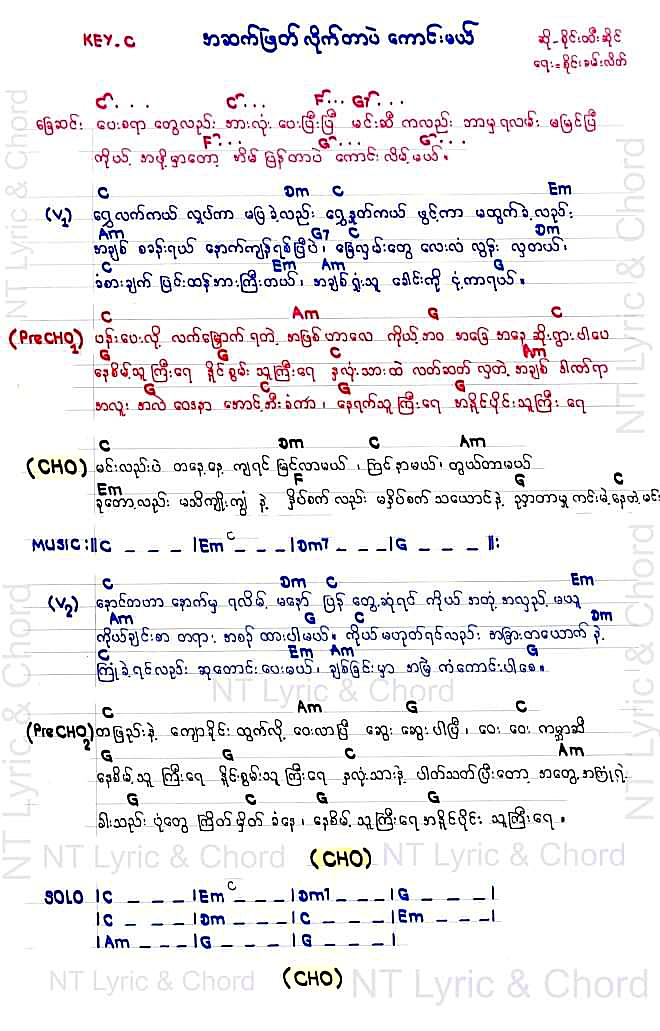 KEY. C အဆက်ဖြတ်လိုက်တာပဲ ကောင်းမယ် ဆို - စိုင်းထီးဆိုင်
ရေး = စိုင်းခမ်းလိတ်
C . . . C . . . F . . . G7 . . .
ဖြေဆင်း ပေးစရာ တွေလည်း အားလုံး ပေးပြီးပြီ မင်းဆီ ကလည်း ဘာမှ ရလမ်း မမြင်ပြီ
F . . . G . . . C . . .
ကိုယ့် အဖို့မှာတော့ အိမ် ပြန်တာပဲ ကောင်းလိမ့်မယ်။
C Dm C Em
(V1) ရွှေလက်ကယ် လှုပ်ကာ မပြခဲ့လည်း ရွှေနှုတ်ကယ် ဖွင့်ကာ မထွက်ခဲ့လည်း
Am G7 C Dm
အချစ် စခန်းရယ် နောက်ကျန်ရစ်ပြီပဲ၊ ခြေလှမ်းတွေ လေးလံ လွန်း လှတယ်၊
C Em Am G
ခံစားချက် ပြင်းထန်အားကြီးတယ်၊ အချစ်ရှုံးသူ ခေါင်းကို ငုံ့ကာရယ်။
C Am G C
(PreCHO1) ပန်းပေးလို့ လက်မြှောက် ရတဲ့ အဖြစ် ဟာလေ ကိုယ့်ဘဝ အခြေ အနေ ဆိုးရွားပါပေ
G G C Am
နေစိမ့်သူကြီးရေ နိုင်စွမ်း သူကြီးရေ နှလုံးသားထဲ လတ်ဆတ် လှတဲ့ အချစ် ဒဏ်ရာ
G C G G
အလူး အလဲ ဝေဒနာ အောင့်အီးခံကာ၊ နေရက်သူကြီးရေ အနိုင်ပိုင်းသူကြီး ရေ
C Dm C Am
(CHO) မင်းလည်းပဲ တနေ့နေ့ ကျရင် မြင်လာမယ်၊ ကြင်နာမယ်၊ တွယ်တာမယ်
Em F G C
ခုတော့လည်း မသိကျိုးကျွံ နဲ့ နှိပ်စက် လည်း မနှိပ်စက် သယောင်နဲ့ ညှာတာမှု ကင်းမဲ့နေတဲ့ မင်း
MUSIC :|| C _ _ _ | Em C _ _ _ | Dm7 _ _ _ | G _ _ _ ||:
C Dm C Em
(V2) နှောင်တဟာ နောက်မှ ရလိမ့် မနော် ပြန် တွေ့ဆုံရင် ကိုယ် အတုံ့ အလှည့် မယူ
Am G C Dm
ကိုယ်ချင်းစာ တရား အစဉ် ထားပါမယ်။ ကိုယ် မဟုတ်ရင်လည်း အခြားတယောက် နဲ့
C Em Am G
ကြုံခဲ့ရင်လည်း ဆုတောင်းပေးမယ်၊ ချစ်ခြင်းမှာ အမြဲ ကံကောင်းပါစေ။
C Am G C
(PreCHO2) တဖြည်းနဲ့ ကျောခိုင်း ထွက်လို့ ဝေးလာပြီ ဆွေး ဆွေးပါပြီ၊ ဝေး ဝေး ကမ္ဘာဆီ
G G C Am
နေစိမ့်သူ ကြီးရေ နိုင်စွမ်းသူ ကြီးရေ နှလုံးသားနဲ့ ပါတ်သတ်ပြီးတော့ အတွေ့အကြုံရဲ့
G C G G
ခါးသည်း ပုံတွေ ကြိတ်မှိတ် ခံနေ၊ နေစိမ့်သူကြီးရေ အနိုင်ပိုင်း သူကြီးရေ။
(CHO)
SOLO | C _ _ _ | Em C _ _ _ | Dm7 _ _ _ | G _ _ _ |
| C _ _ _ | Dm _ _ _ | C _ _ _ | Em _ _ _ |
| Am _ _ _ | G _ _ _ | G _ _ _ |
(CHO)
NT Lyric & Chord
NT Lyric & Chord
NT Lyric & Chord
NT Lyric & Chord
NT Lyric & Chord
NT Lyric & Chord
NT Lyric & Chord
NT Lyric & Chord
NT Lyric & Chord